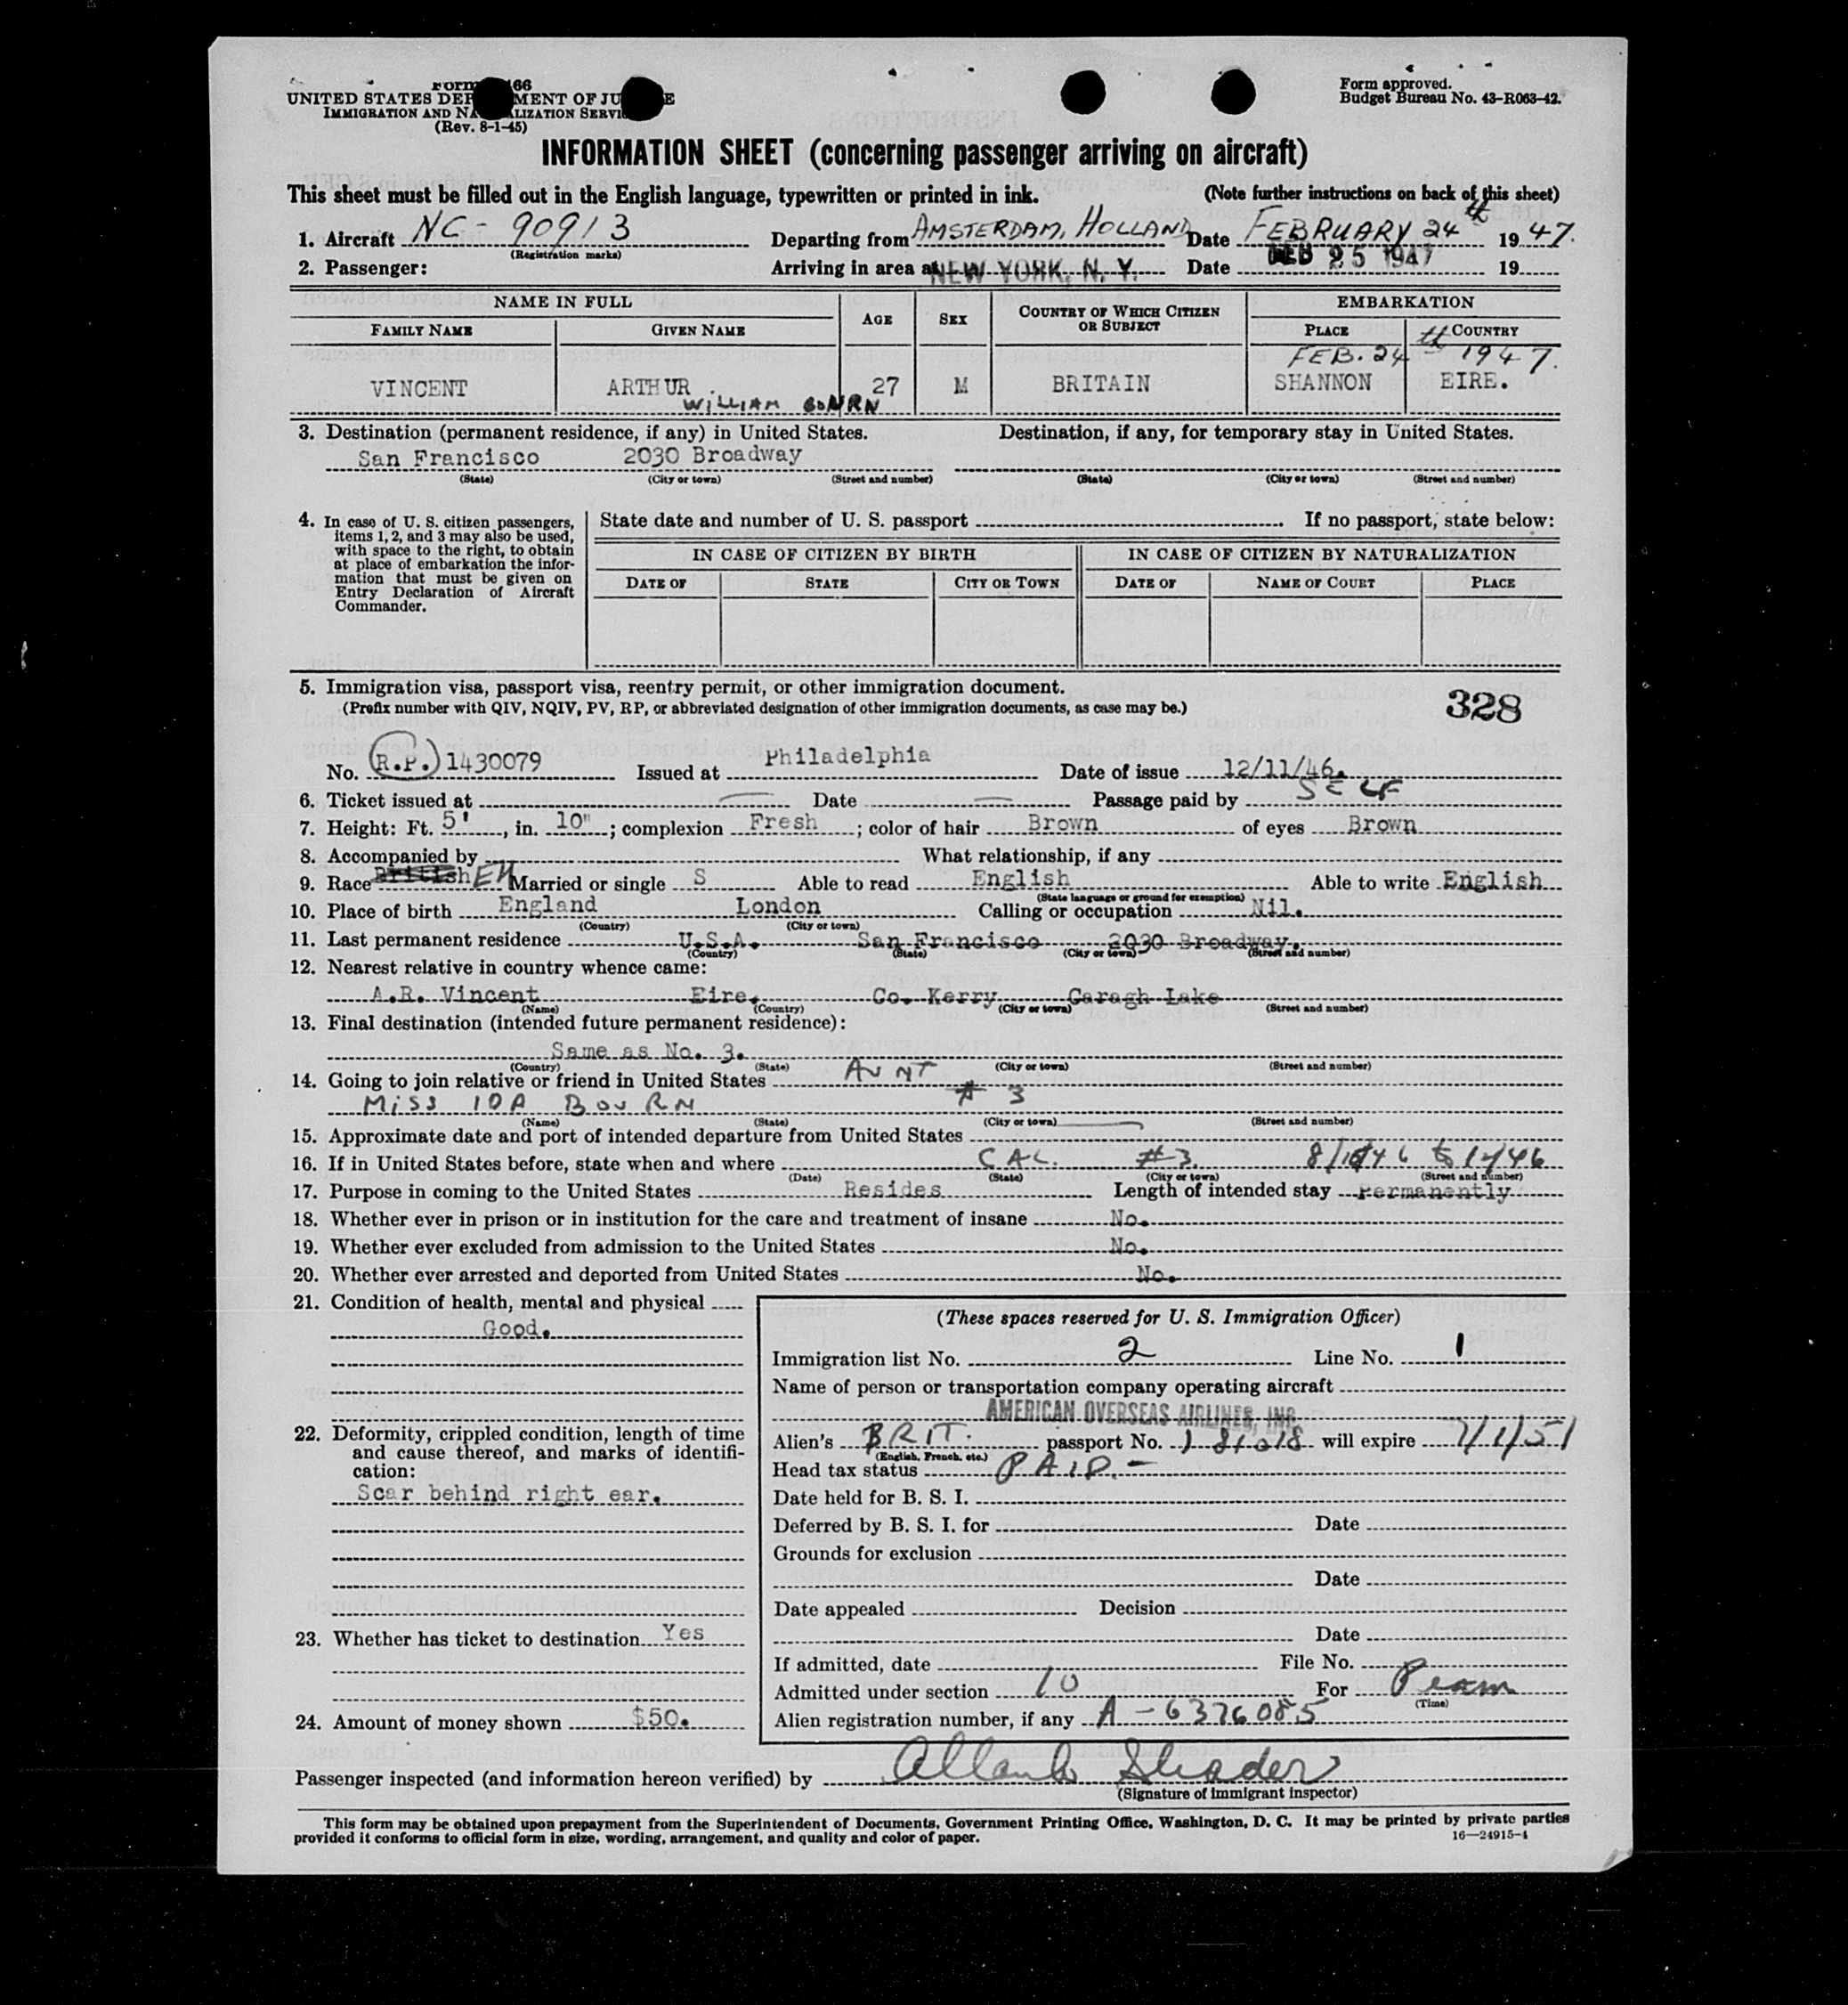 66
UNITED STATES DEP MENT OF JU E
IMMIGRATION AND NA LIZATION SERVI
(Rev. 8-1-45)
Form approved.
Budget Bureau No. 43-R063-42.
INFORMATION SHEET (concerning passenger arriving on aircraft)
This sheet must be filled out in the English language, typewritten or printed in ink. (Note further instructions on back of this sheet)
1. Aircraft NC-90913 Departing from AMSTERDAM, HOLLAND Date FEBRUARY 24th 1947.
(Registration marks)
2. Passenger: Arriving in area at NEW YORK, N. Y. Date FEB 25 1947 19
NAME IN FULL AGE SEX COUNTRY OF WHICH CITIZEN OR SUBJECT EMBARKATION
FAMILY NAME GIVEN NAME PLACE COUNTRY
FEB. 24th 1947.
VINCENT ARTHUR 27 M BRITAIN SHANNON EIRE.
WILLIAM
3. Destination (permanent residence, if any) in United States. Destination, if any, for temporary stay in United States.
San Francisco 2030 Broadway
(State) (City or town) (Street and number) (State) (City or town) (Street and number)
4. In case of U. S. citizen passengers, items 1, 2, and 3 may also be used, with space to the right, to obtain at place of embarkation the information that must be given on Entry Declaration of Aircraft Commander.
State date and number of U. S. passport If no passport, state below:
IN CASE OF CITIZEN BY BIRTH IN CASE OF CITIZEN BY NATURALIZATION
DATE OF STATE CITY OR TOWN DATE OF NAME OF COURT PLACE
5. Immigration visa, passport visa, reentry permit, or other immigration document.
(Prefix number with QIV, NQIV, PV, RP, or abbreviated designation of other immigration documents, as case may be.)
328
No. R.P. 1430079 Issued at Philadelphia Date of issue 12/11/46.
6. Ticket issued at — Date — Passage paid by SELF
7. Height: Ft. 5', in. 10"; complexion Fresh; color of hair Brown of eyes Brown
8. Accompanied by What relationship, if any
9. Race British Married or single S Able to read English Able to write English
(State language or ground for exemption)
10. Place of birth England London Calling or occupation Nil.
(Country) (City or town)
11. Last permanent residence U.S.A. San Francisco 2030 Broadway.
(Country) (State) (City or town) (Street and number)
12. Nearest relative in country whence came:
A.R. Vincent Eire. Co. Kerry Caragh Lake
(Name) (Country) (City or town) (Street and number)
13. Final destination (intended future permanent residence):
Same as No. 3.
(Country) (State) (City or town) (Street and number)
14. Going to join relative or friend in United States AUNT
MISS IDA BOURN # 3
(Name) (State) (City or town) (Street and number)
15. Approximate date and port of intended departure from United States —
16. If in United States before, state when and where CAL. #3 to 12/46
(Date) (State) (City or town) (Street and number)
17. Purpose in coming to the United States Resides Length of intended stay Permanently
18. Whether ever in prison or in institution for the care and treatment of insane No.
19. Whether ever excluded from admission to the United States No.
20. Whether ever arrested and deported from United States No.
21. Condition of health, mental and physical
Good.
22. Deformity, crippled condition, length of time and cause thereof, and marks of identification:
Scar behind right ear.
23. Whether has ticket to destination Yes
24. Amount of money shown $50.
(These spaces reserved for U. S. Immigration Officer)
Immigration list No. 2 Line No. 1
Name of person or transportation company operating aircraft
AMERICAN OVERSEAS AIRLINES, INC.
Alien's BRIT. passport No. will expire 7/1/51
(English, French, etc.)
Head tax status PAID.-
Date held for B. S. I.
Deferred by B. S. I. for Date
Grounds for exclusion
Date
Date appealed Decision
Date
If admitted, date File No.
Admitted under section 10 For Perm
(Time)
Alien registration number, if any A-6376085
Passenger inspected (and information hereon verified) by
(Signature of immigrant inspector)
This form may be obtained upon prepayment from the Superintendent of Documents, Government Printing Office, Washington, D. C. It may be printed by private parties
provided it conforms to official form in size, wording, arrangement, and quality and color of paper. 16—24915-1